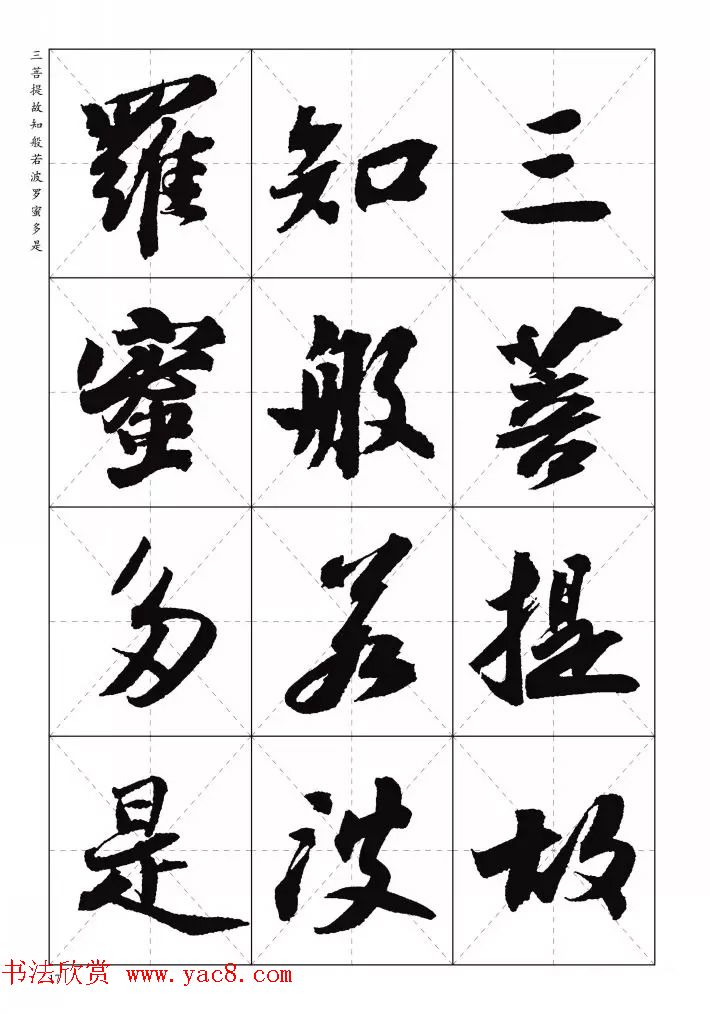 三菩提故知般若波罗蜜多是
三菩提故
知般若波
羅蜜多是
书法欣赏 www.yac8.com